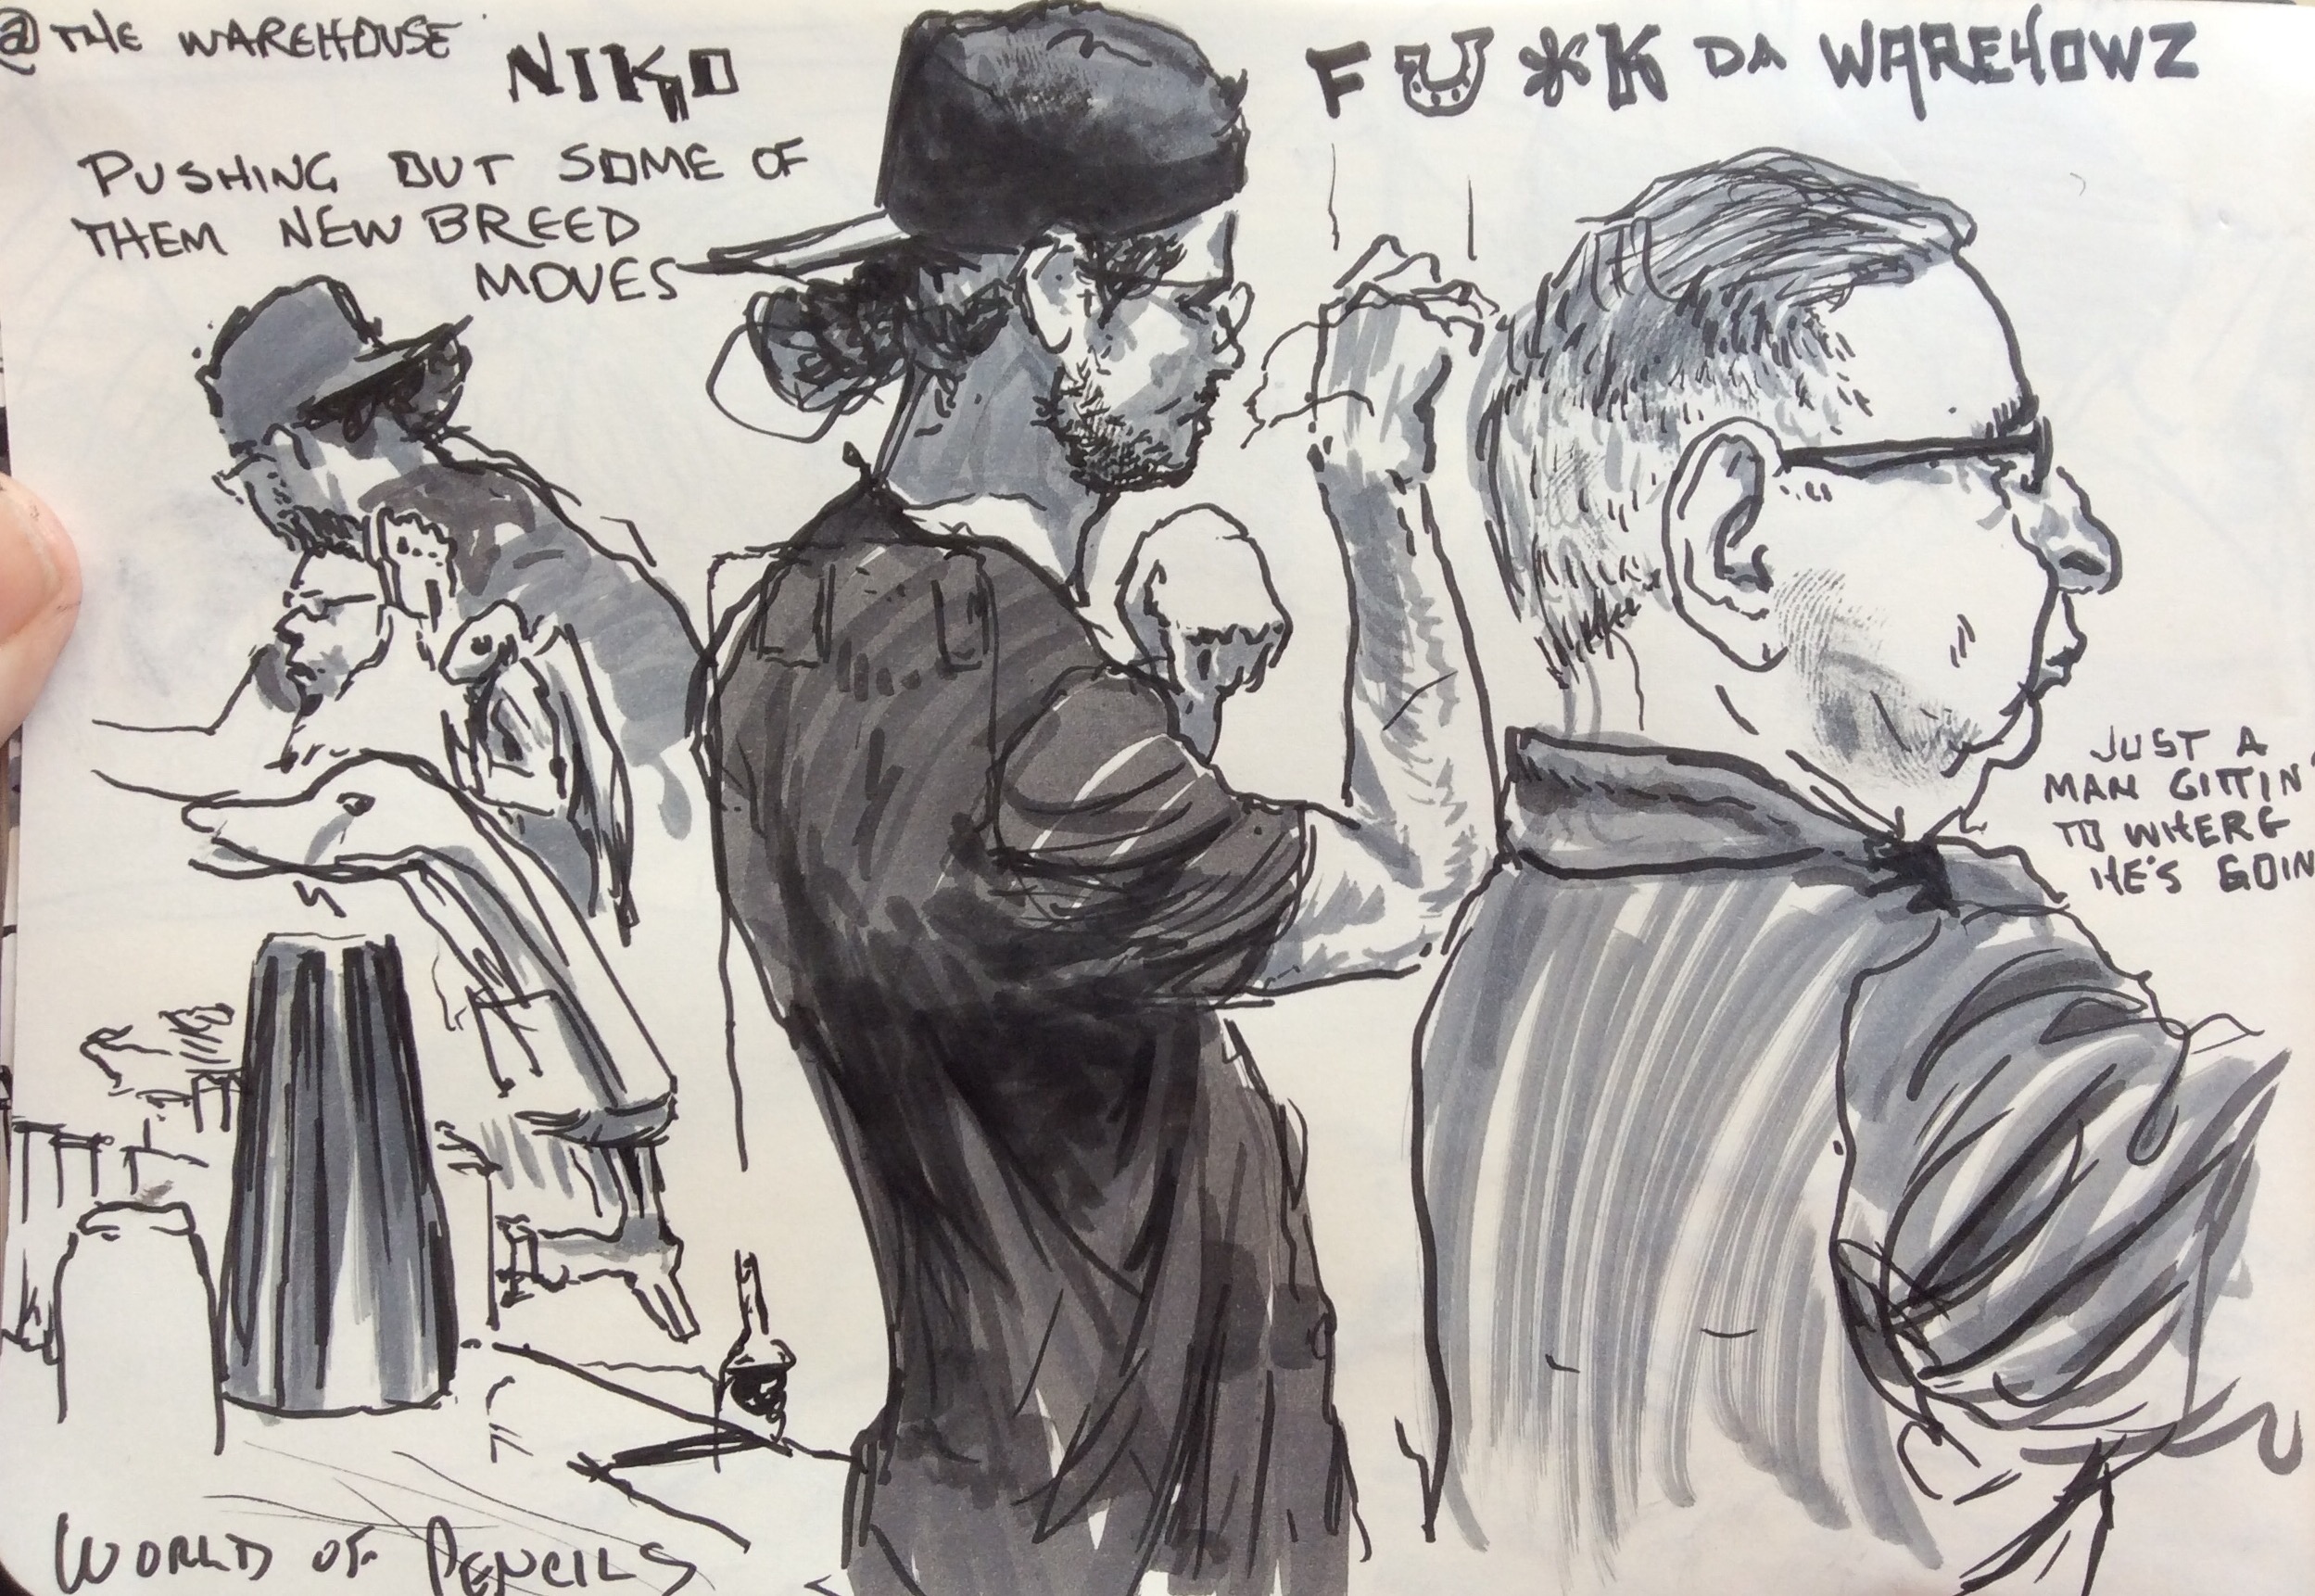 @ THE WAREHOUSE
NIKO
PUSHING OUT SOME OF
THEM NEW BREED
MOVES
FU*K DA WAREHOWZ
JUST A
MAN GITTIN'
TO WHERE
HE'S GOIN
WORLD OF PENCILS